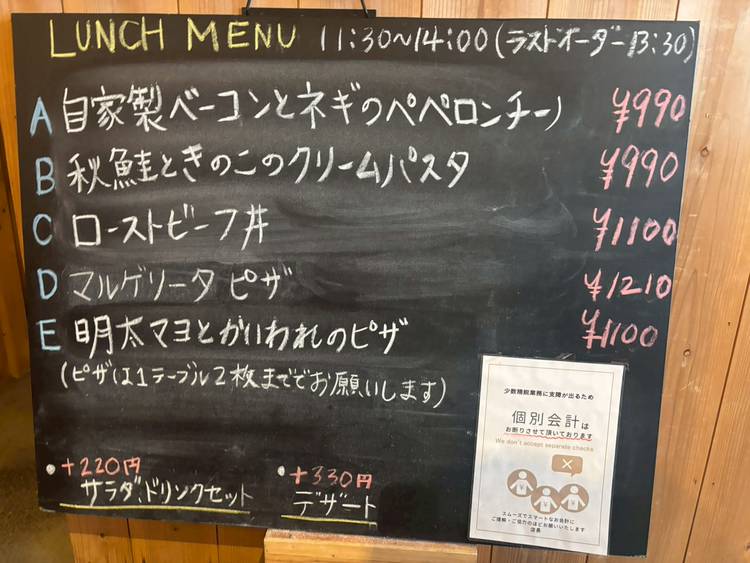 LUNCH MENU 11:30~14:00(ラストオーダー13:30)
A 自家製ベーコンとネギのペペロンチーノ ¥990
B 秋鮭ときのこのクリームパスタ ¥990
C ローストビーフ丼 ¥1100
D マルゲリータ ピザ ¥1210
E 明太マヨとかいわれのピザ ¥1100
(ピザは1テーブル2枚まででお願いします)
・+220円
サラダ、ドリンクセット
・+330円
デザート
少数精鋭業務に支障が出るため
個別会計は
お断りさせて頂いております
We don't accept separate checks
スムーズでスマートなお会計に
ご理解・ご協力のほどお願いいたします
店長